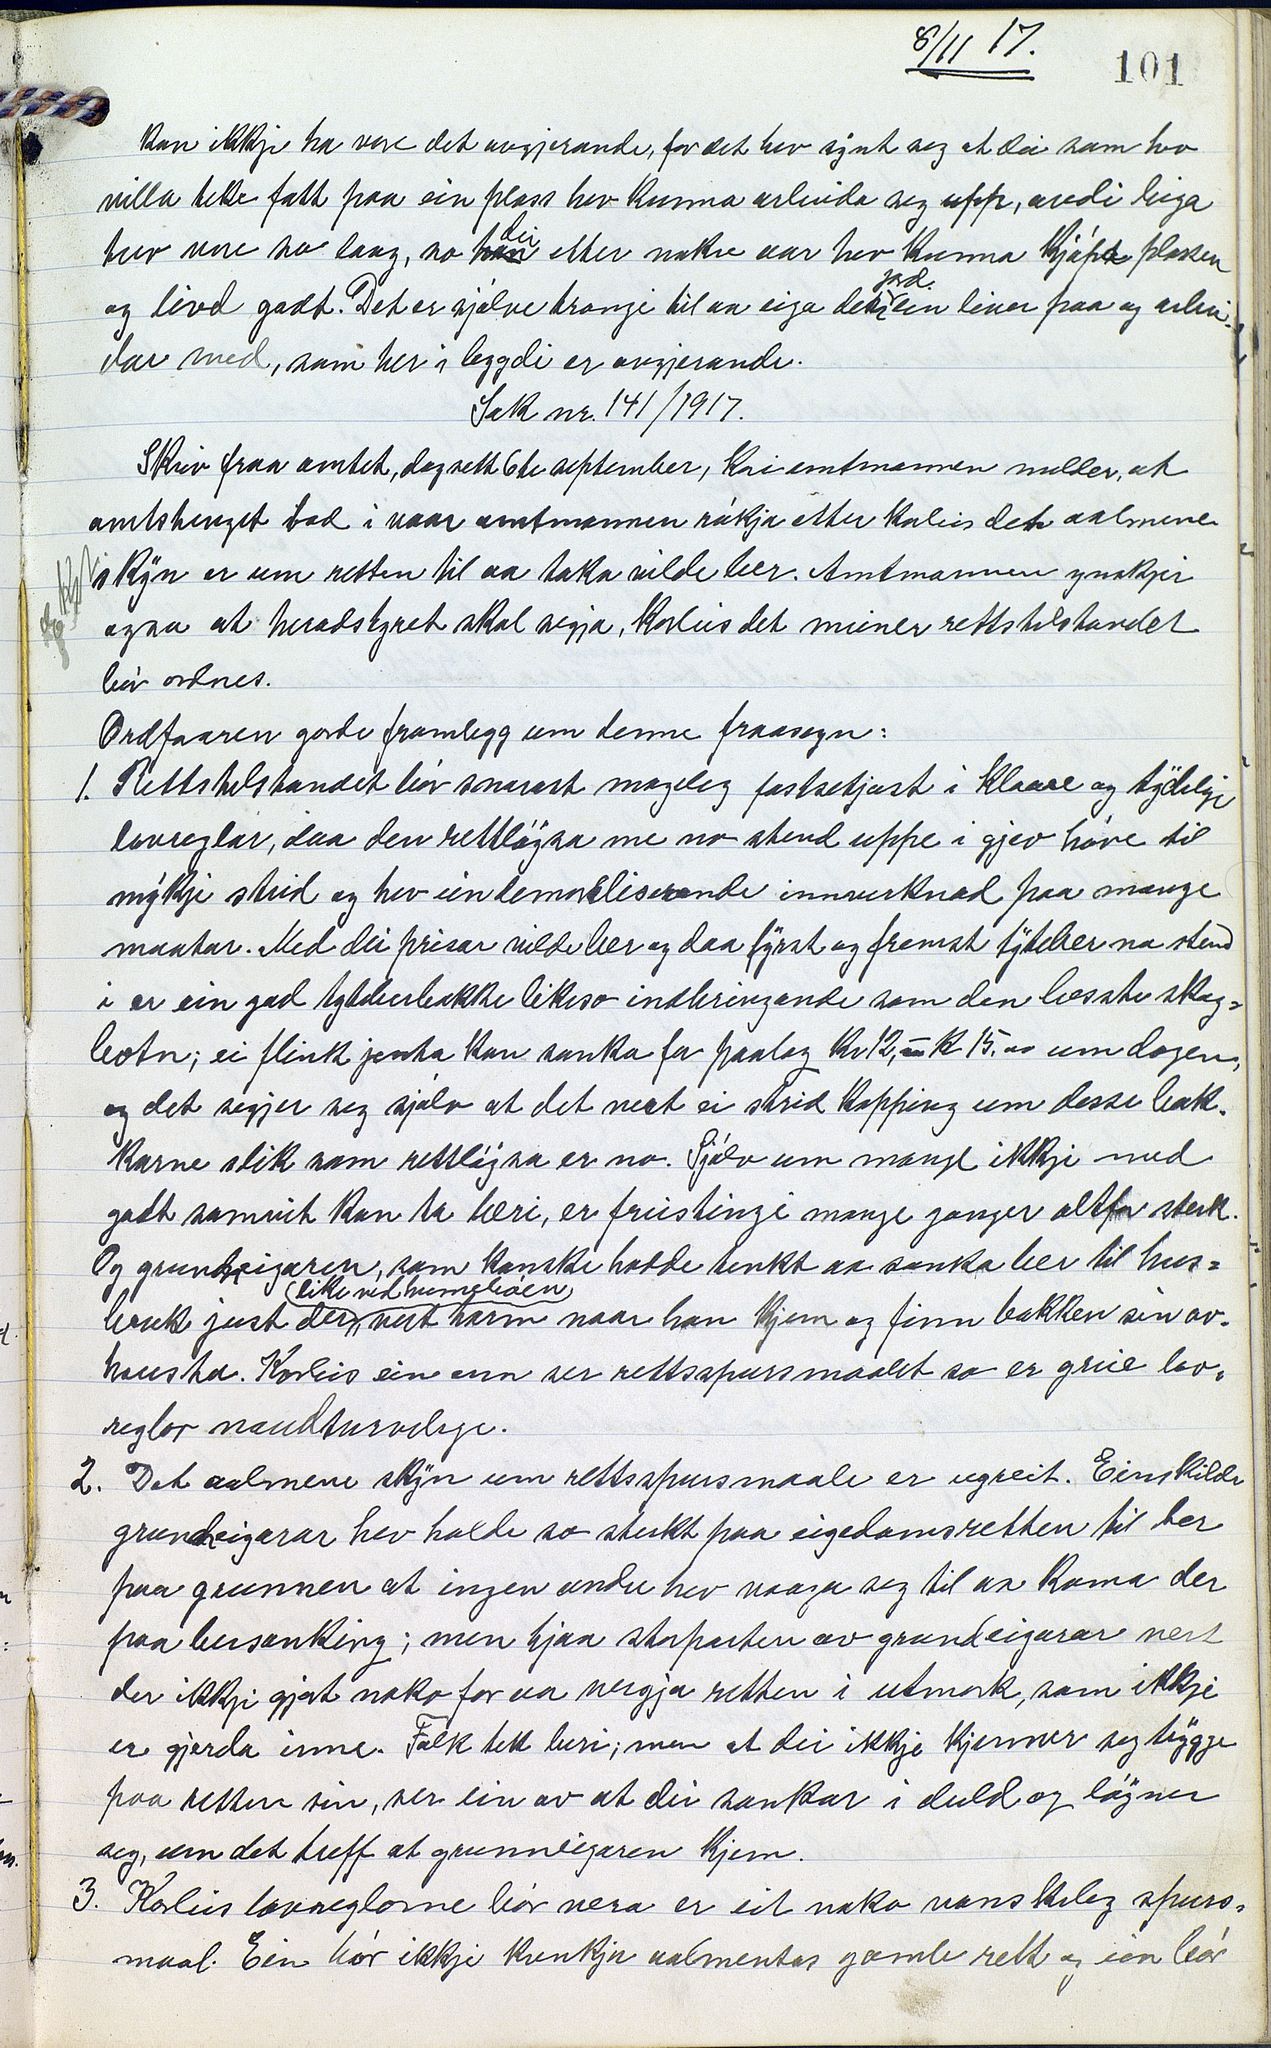 8/11 17.
101
kan ikkje ha vore det avgjerande, for det hev synt seg at dei som hev
villa teke fatt paa ein plass hev kunna arbeida seg upp, avdi leiga
hev vore so laag, so dei etter nokre aar hev kunna kjøpt plassen
og livd godt. Det er sjølve trongje til aa eiga den jord ein liver paa og arbei-
dar med, som her i bygdi er avgjerande.
Sak nr. 141/1917.
Skriv fraa amtet, dagsett 6te september, kori amtmannen melder, at
amtstinget bad i vaar amtmannen røkja etter korleis det aalmene
skyn er um retten til aa taka ville ber. Amtmannen ynskjer
ogso at heradstyret skal segja, korleis det meiner rettstilstandet
bør ordnes.
Ordføraren gorde framlegg um denne fraasegn:
1. Rettstilstandet bør snarast mogeleg fastsetjast i klaare og tydelige
lovreglar, daa den rettløysa me no stend uppe i gjev høve til
mykje strid og hev ein demoraliserande innverknad paa mange
maatar. Med dei prisar vilde ber og daa fyrst og fremst tyteber no stend
i er ein god tyteberbakke likeso indbringande som den besste skog-
botn; ei flink jenta kan sanka for paalag kr 12,00 – kr 15.00 um dagen,
og det segjer seg sjølv at det vert ei strid kapping um desse bak-
karne slik som rettløysa er no. Sjølv um mange ikkje med
godt samvit kan ta beri, er freistingi mange gonger altfor sterk.
Og grundeigaren, som kanske hadde tenkt aa sanka ber til hus-
bruk just der, like ved heimebøen vert harm naar han kjem og finn bakken sin av-
hausta. Korleis ein enn ser rettsspursmaalet so er greie lov-
reglar naudturvelege.
2. Det aalmene skyn um rettsspursmaale er ugreit. Einskilde
grundeigarar hev halde so sterkt paa eigedomsretten til ber
paa grunnen at ingen andre hev vaaga seg til aa koma der
paa bersanking; men hjaa storparten av grundeigarar vert
der ikkje gjort noko for aa vergja retten i utmark, som ikkje
er gjerda inne. Folk tek beri; men at dei ikkje kjenner seg trygge
paa retten sin, ser ein av at dei sankar i duld og løyner
seg, um det treff at grunneigaren kjem.
3. Korleis lovreglarne bør vera er eit noko vanskeleg spurs-
maal. Ein bør ikkje krenkja aalmentas gamle rett og ein bør